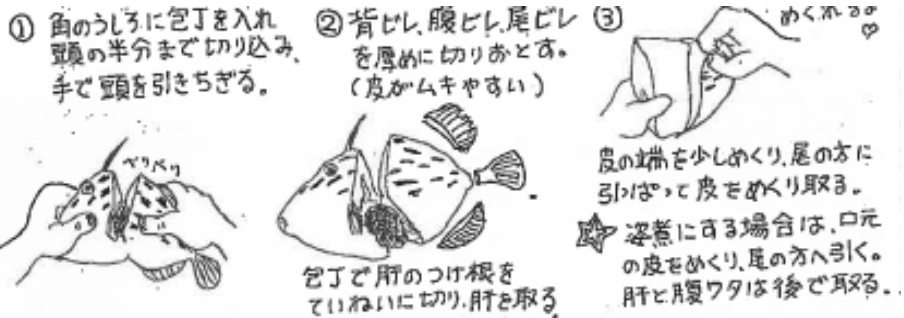 ① 角のうしろに包丁を入れ
頭の半分まで切り込み、
手で頭を引きちぎる。
ベリベリ
② 背ビレ、腹ビレ、尾ビレ
を厚めに切りおとす。
(皮がムキやすい)
包丁で肝のつけ根を
ていねいに切り、肝を取る
③
めくれるよ
♡
皮の端を少しめくり、尾の方に
引っぱって皮をめくり取る。
☆ 姿煮にする場合は、口元
の皮をめくり、尾の方へ引く。
肝と腹ワタは後で取る。